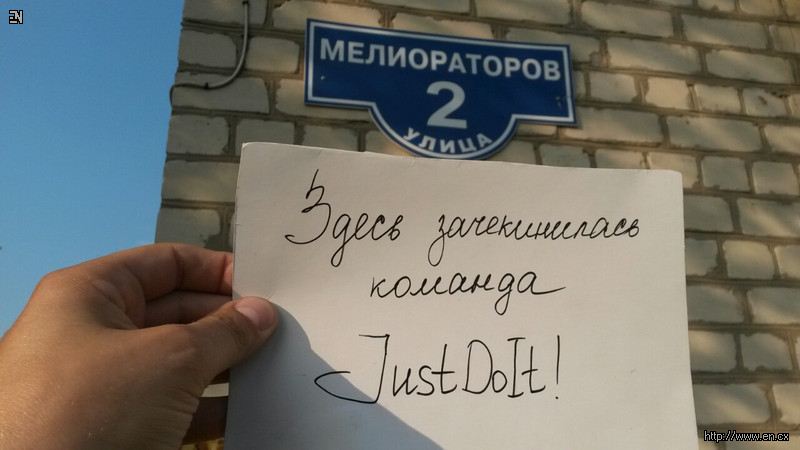 EN
МЕЛИОРАТОРОВ
2
УЛИЦА
Здесь зачекинилась
команда
JustDoIt!
http://www.en.cx